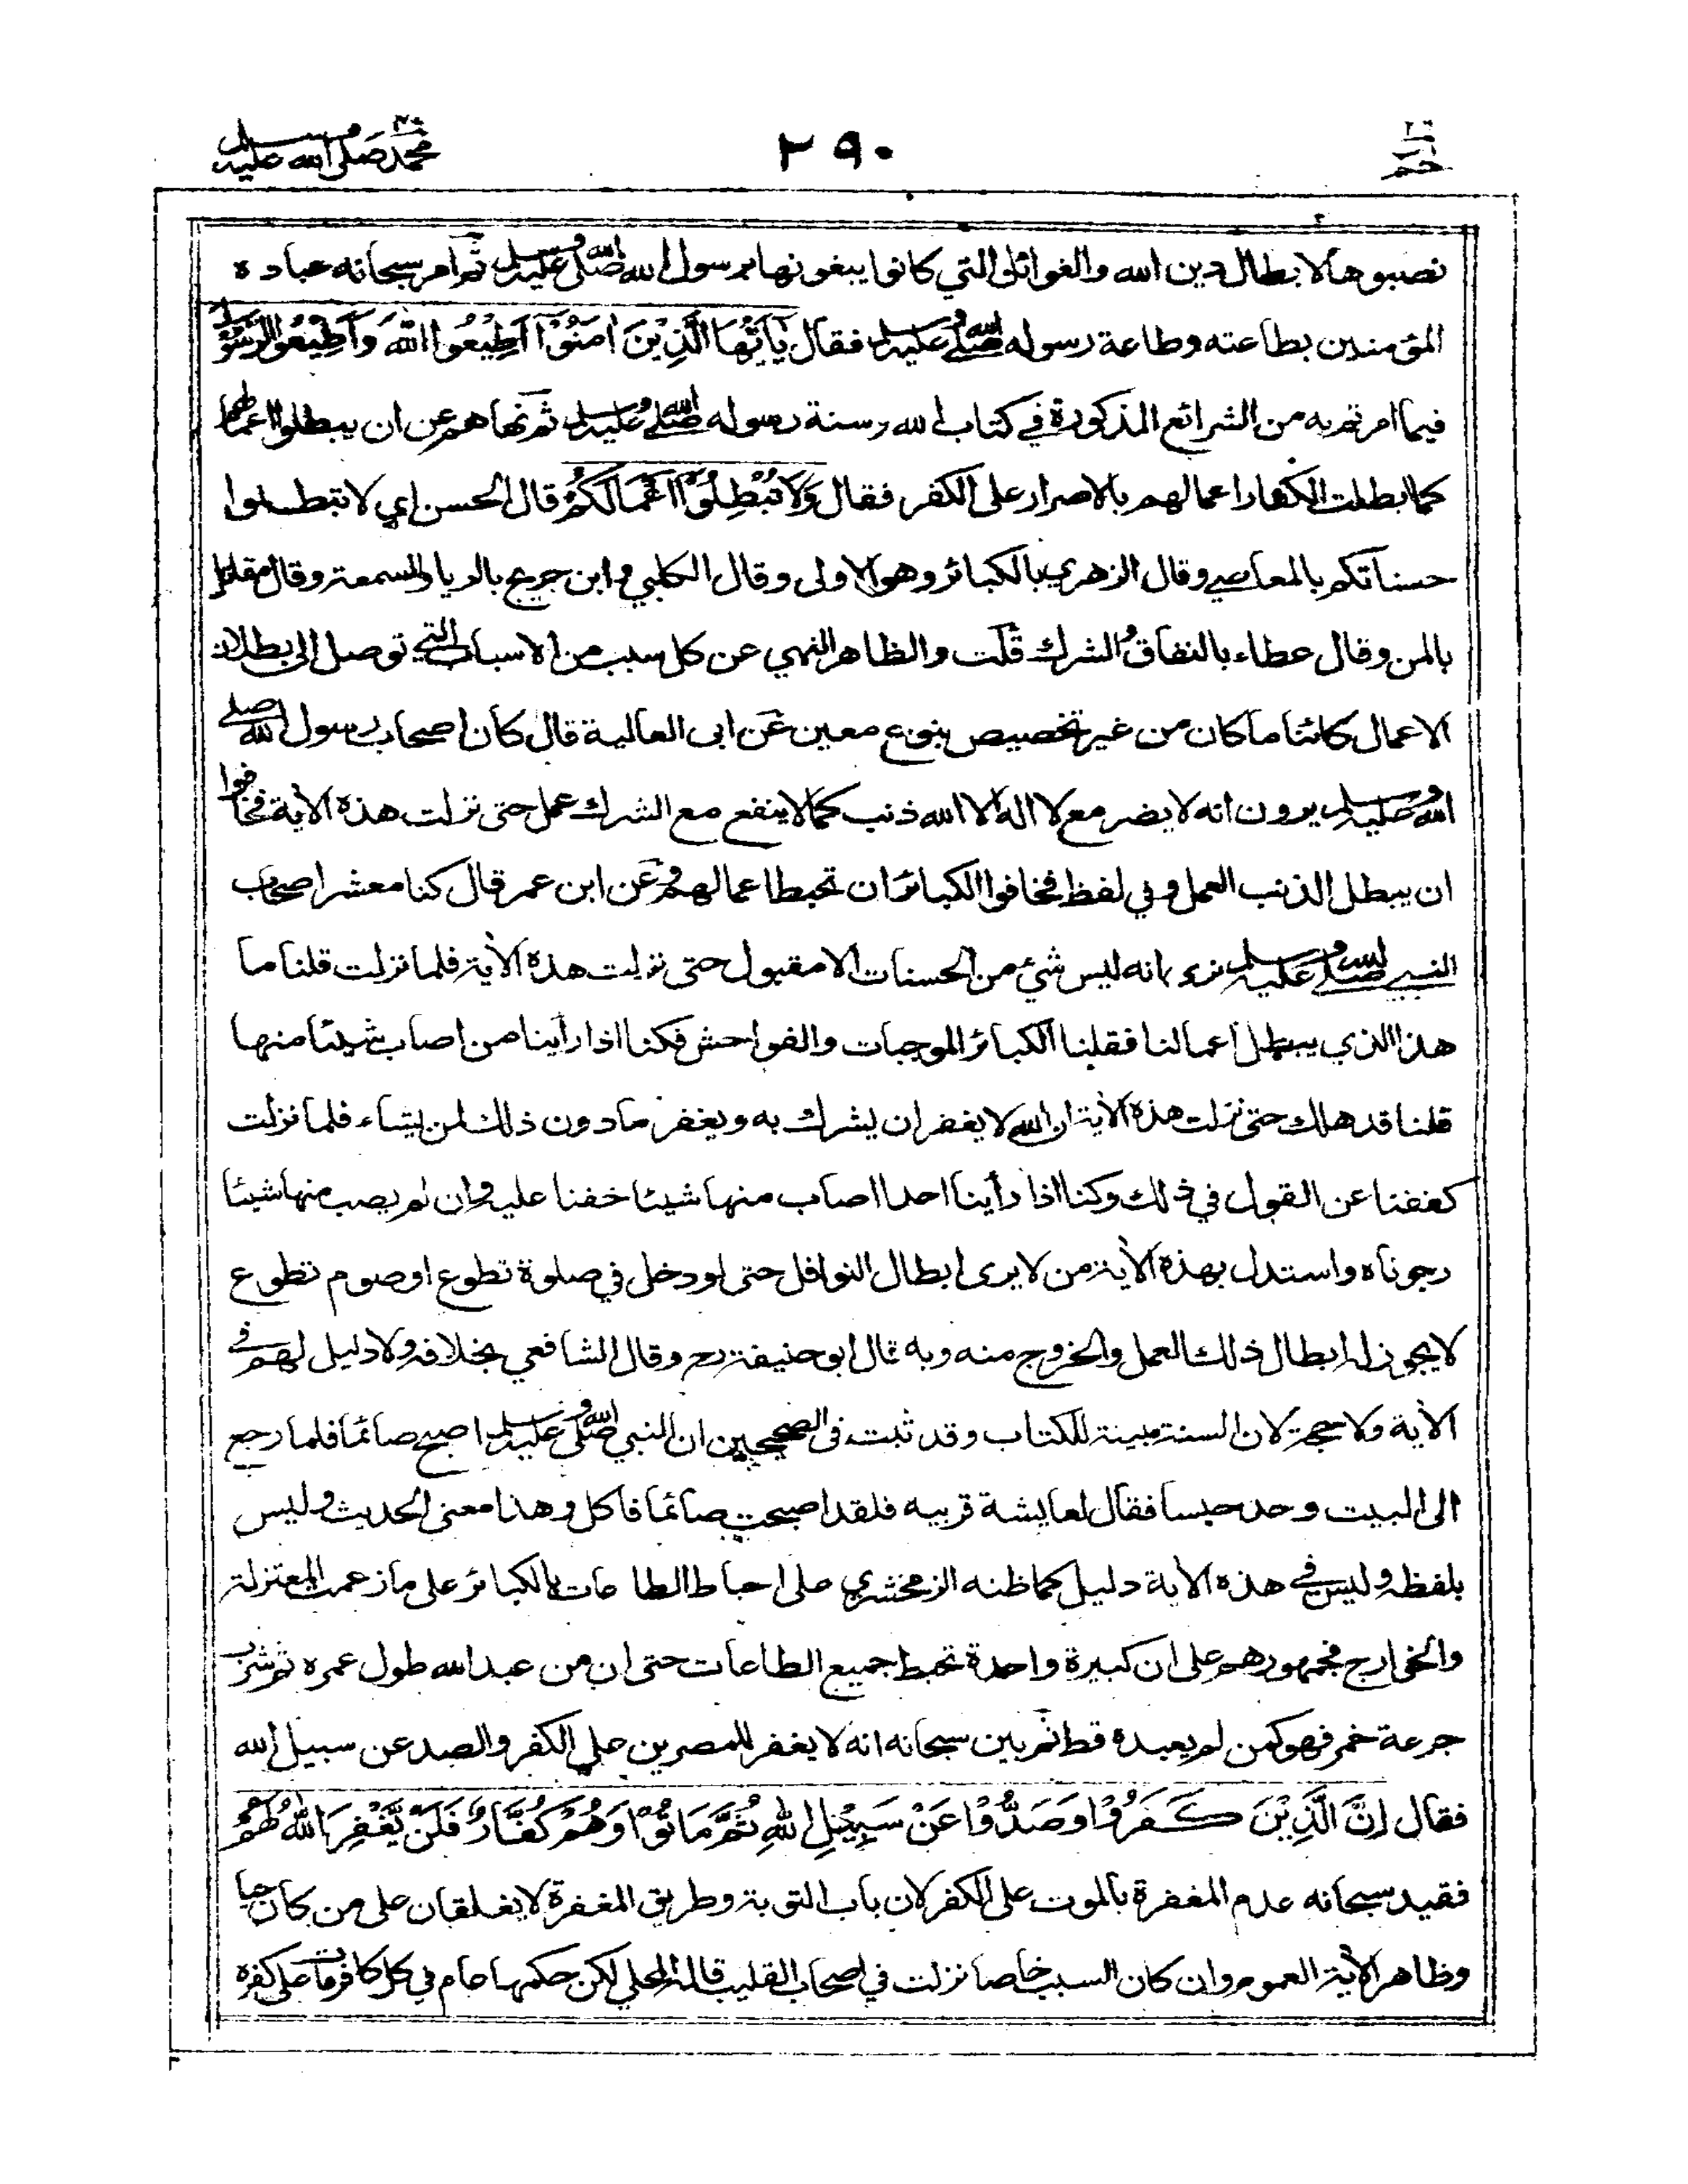 حم ٢٦
٢٩٠
محمد صلى الله عليه وسلم ٤٧
نصبوها لابطال دين الله والغوائل التي كانوا يبغونها برسول الله صلى الله عليه وسلم ثم امر سبحانه عباده
المؤمنين بطاعته وطاعة رسوله صلى الله عليه وسلم فقال يٰۤاَيُّهَا الَّذِيْنَ اٰمَنُوْۤا اَطِيْعُوا اللّٰهَ وَاَطِيْعُوا الرَّسُوْلَ
فيما امرتم به من الشرائع المذكورة في كتاب الله وسنة رسوله صلى الله عليه وسلم ثم نهاهم عن ان يبطلوا اعمالهم
كما ابطلت الكفار اعمالهم بالاصرار على الكفر فقال وَلَا تُبْطِلُوْۤا اَعْمَالَكُمْ قال الحسن اي لا تبطلوا
حسناتكم بالمعاصي وقال الزهري بالكبائر وهو الاولى وقال الكلبي وابن جريج بالريا والسمعة وقال مقاتل
بالمن وقال عطاء بالنفاق والشرك قلت والظاهر النهي عن كل سبب من الاسباب التي توصل الى بطلان
الاعمال كائنا ما كان من غير تخصيص بنوع معين عن ابى العالية قال كان اصحاب رسول الله صلى
الله عليه وسلم يرون انه لا يضر مع لا اله الا الله ذنب كما لا ينفع مع الشرك عمل حتى نزلت هذه الأية فخافوا
ان يبطل الذنب العمل وفي لفظ فخافوا الكبائر ان تحبط اعمالهم وعن ابن عمر قال كنا معشر اصحاب
النبي صلى الله عليه وسلم نرى انه ليس شئ من الحسنات الا مقبول حتى نزلت هذه الأية فلما نزلت قلنا ما
هذا الذي يبطل اعمالنا فقلنا الكبائر الموجبات والفواحش فكنا اذا رأينا من اصاب شيئا منها
قلنا قد هلك حتى نزلت هذه الأية ان الله لا يغفر ان يشرك به ويغفر ما دون ذلك لمن يشاء فلما نزلت
كففنا عن القول في ذلك وكنا اذا رأينا احدا اصاب منها شيئا خفنا عليه وان لم يصب منها شيئا
رجوناه واستدل بهذه الأية من لا يرى ابطال النوافل حتى لو دخل في صلوة تطوع او صوم تطوع
لا يجوز له ابطال ذلك العمل والخروج منه وبه قال ابو حنيفة رح وقال الشافعي بخلافه ولا دليل لهم في
الأية ولا حجة لان السنة مبينة للكتاب وقد ثبت فى الصحيحين ان النبي صلى الله عليه وسلم اصبح صائما فلما رجع
الى البيت وجد حيسا فقال لعايشة قربيه فلقد اصبحت صائما فاكل وهذا معنى الحديث وليس
بلفظه وليس في هذه الأية دليل كما ظنه الزمخشري على احباط الطاعات بالكبائر على ما زعمت المعتزلة
والخوارج فجمهورهم على ان كبيرة واحدة تحبط جميع الطاعات حتى ان من عبد الله طول عمره ثم شرب
جرعة خمر فهو كمن لم يعبده قط ثم بين سبحانه انه لا يغفر للمصرين على الكفر والصد عن سبيل الله
فقال اِنَّ الَّذِيْنَ كَفَرُوْا وَصَدُّوْا عَنْ سَبِيْلِ اللّٰهِ ثُمَّ مَاتُوْا وَهُمْ كُفَّارٌ فَلَنْ يَّغْفِرَ اللّٰهُ لَهُمْ
فقيد سبحانه عدم المغفرة بالموت على الكفر لان باب التوبة وطريق المغفرة لا يغلقان على من كان حيا
وظاهر الأية العموم وان كان السبب خاصا نزلت في اصحاب القليب قاله المحلي لكن حكمها عام في كل كافر مات على كفره